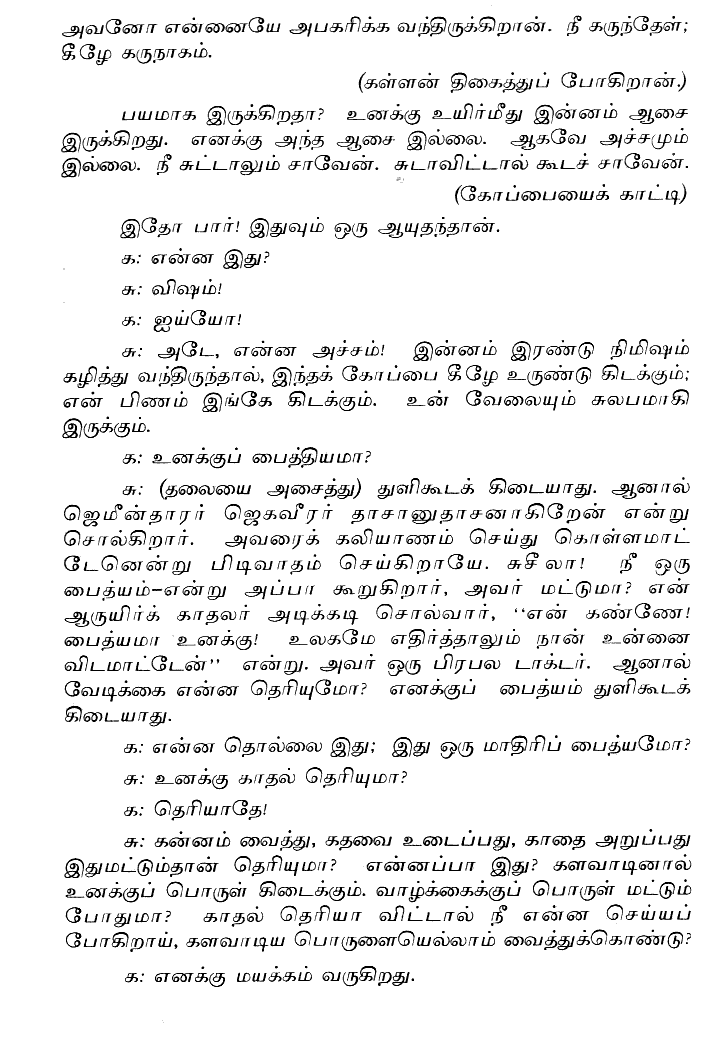 அவனோ என்னையே அபகரிக்க வந்திருக்கிறான். நீ கருந்தேள்;
கீழே கருநாகம்.
(கள்ளன் திகைத்துப் போகிறான்.)
பயமாக இருக்கிறதா? உனக்கு உயிர்மீது இன்னம் ஆசை
இருக்கிறது. எனக்கு அந்த ஆசை இல்லை. ஆகவே அச்சமும்
இல்லை. நீ சுட்டாலும் சாவேன். சுடாவிட்டால் கூடச் சாவேன்.
(கோப்பையைக் காட்டி)
இதோ பார்! இதுவும் ஒரு ஆயுதந்தான்.
க: என்ன இது?
சு: விஷம்!
க: ஐய்யோ!
சு: அடே, என்ன அச்சம்! இன்னம் இரண்டு நிமிஷம்
கழித்து வந்திருந்தால், இந்தக் கோப்பை கீழே உருண்டு கிடக்கும்;
என் பிணம் இங்கே கிடக்கும். உன் வேலையும் சுலபமாகி
இருக்கும்.
க: உனக்குப் பைத்தியமா?
சு: (தலையை அசைத்து) துளிகூடக் கிடையாது. ஆனால்
ஜெமீன்தாரர் ஜெகவீரர் தாசானுதாசனாகிறேன் என்று
சொல்கிறார். அவரைக் கலியாணம் செய்து கொள்ளமாட்
டேனென்று பிடிவாதம் செய்கிறாயே. சுசீலா! நீ ஒரு
பைத்யம்–என்று அப்பா கூறுகிறார், அவர் மட்டுமா? என்
ஆருயிர்க் காதலர் அடிக்கடி சொல்வார், "என் கண்ணே!
பைத்யமா உனக்கு! உலகமே எதிர்த்தாலும் நான் உன்னை
விடமாட்டேன்" என்று. அவர் ஒரு பிரபல டாக்டர். ஆனால்
வேடிக்கை என்ன தெரியுமோ? எனக்குப் பைத்யம் துளிகூடக்
கிடையாது.
க: என்ன தொல்லை இது; இது ஒரு மாதிரிப் பைத்யமோ?
சு: உனக்கு காதல் தெரியுமா?
க: தெரியாதே!
சு: கன்னம் வைத்து, கதவை உடைப்பது, காதை அறுப்பது
இதுமட்டும்தான் தெரியுமா? என்னப்பா இது? களவாடினால்
உனக்குப் பொருள் கிடைக்கும். வாழ்க்கைக்குப் பொருள் மட்டும்
போதுமா? காதல் தெரியா விட்டால் நீ என்ன செய்யப்
போகிறாய், களவாடிய பொருளையெல்லாம் வைத்துக்கொண்டு?
க: எனக்கு மயக்கம் வருகிறது.